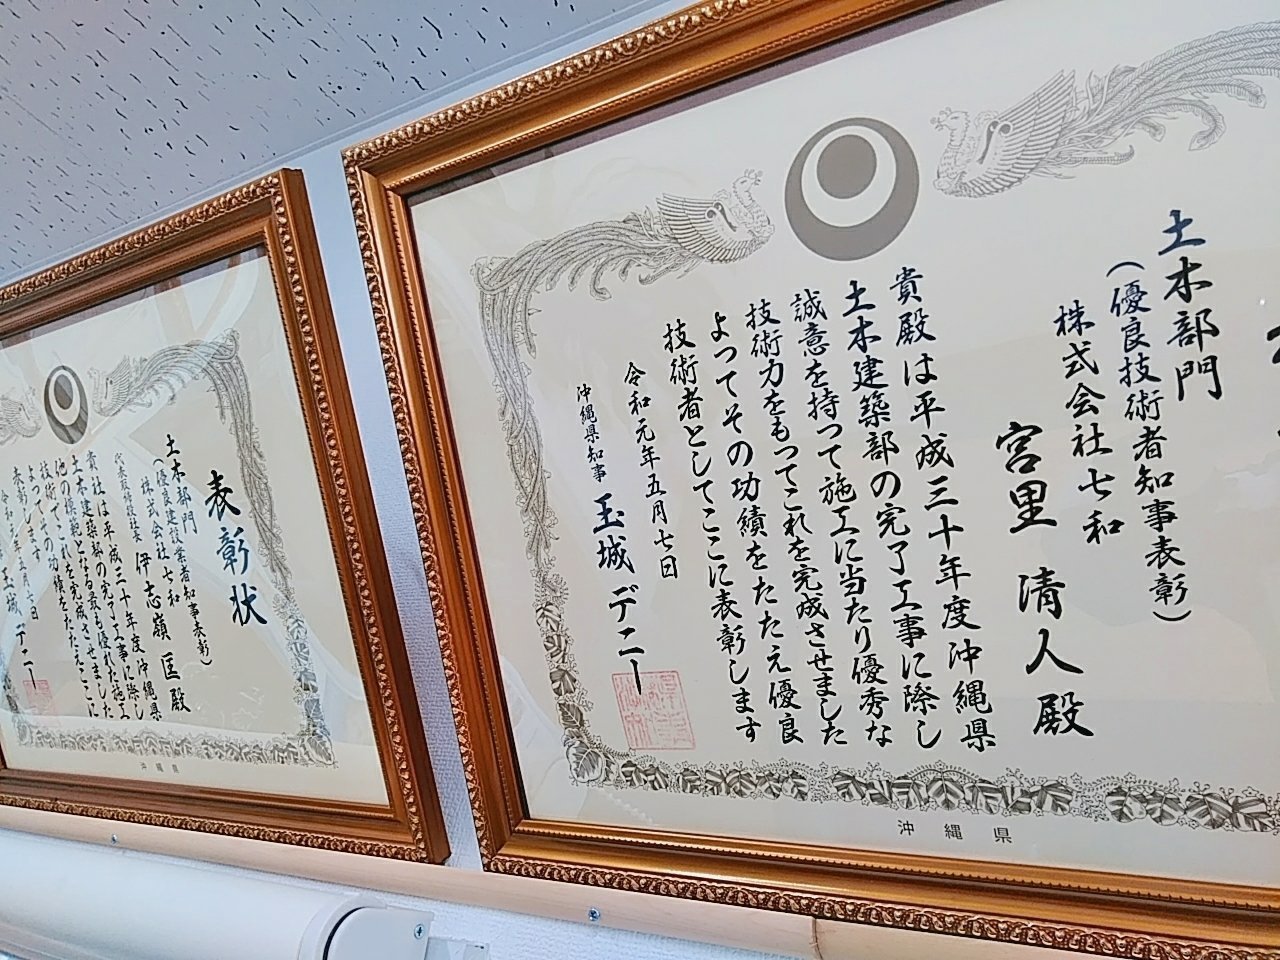 土木部門
(優良技術者知事表彰)
株式会社七和
宮里 清人 殿
貴殿は平成三十年度沖縄県
土木建築部の完了工事に際し
誠意を持って施工に当たり優秀な
技術力をもってこれを完成させました
よってその功績をたたえ優良
技術者としてここに表彰します
令和元年五月七日
沖縄県知事 玉城 デニー
沖縄県
表彰状
土木部門
(優良建設業者知事表彰)
株式会社七和
代表取締役社長 伊志嶺 匡 殿
貴社は平成三十年度沖縄県
土木建築部の完了工事に際し
他の模範となる最も優れた施工
技術でこれを完成させました
よってその功績をたたえここに
表彰します
令和元年五月七日
玉城 デニー
沖縄県